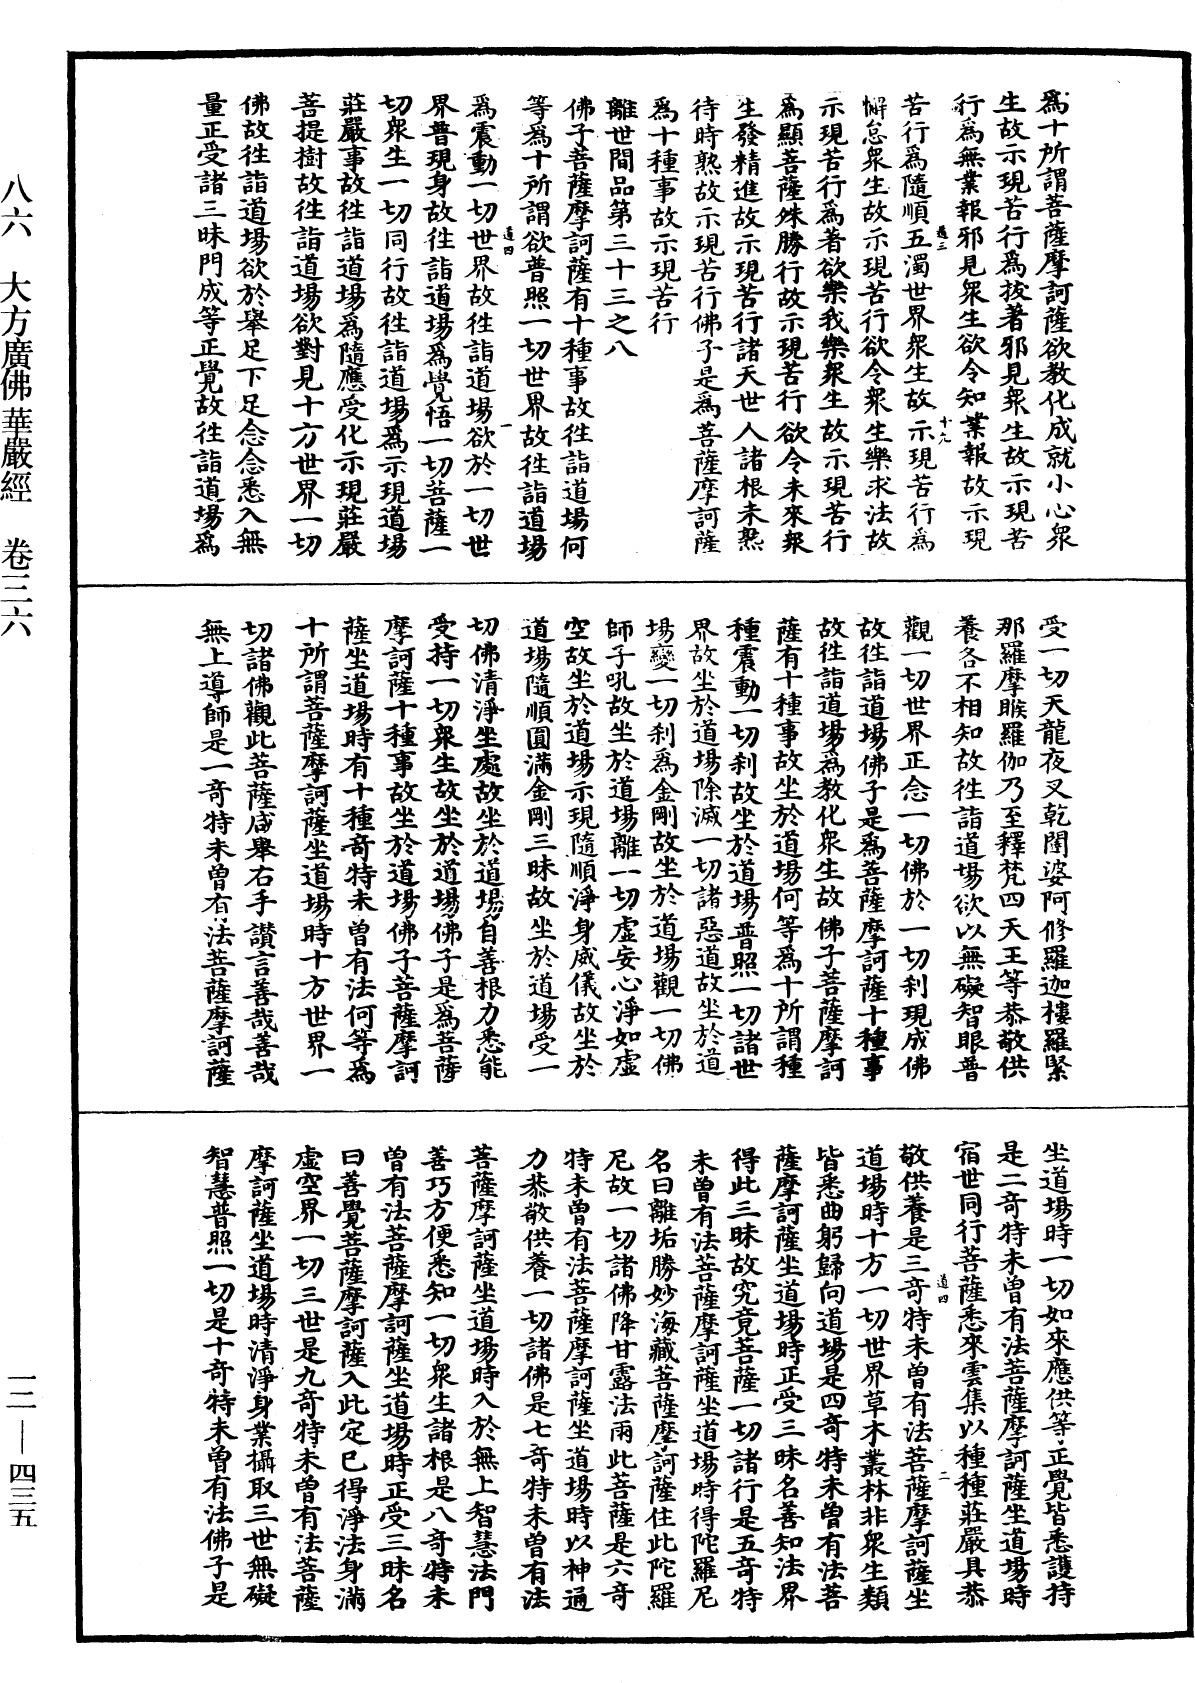 爲十所謂菩薩摩訶薩欲教化成就小心衆
生故示現苦行爲拔著邪見衆生故示現苦
行爲無業報邪見衆生欲令知業報故示現
苦行爲隨順五濁世界衆生故示現苦行爲
懈怠衆生故示現苦行欲令衆生樂求法故
示現苦行爲著欲樂我樂衆生故示現苦行
爲顯菩薩殊勝行故示現苦行欲令未來衆
生發精進故示現苦行諸天世人諸根未熟
待時熟故示現苦行佛子是爲菩薩摩訶薩
爲十種事故示現苦行
離世間品第三十三之八
佛子菩薩摩訶薩有十種事故往詣道場何
等爲十所謂欲普照一切世界故往詣道場
爲震動一切世界故往詣道場欲於一切世
界普現身故往詣道場爲覺悟一切菩薩一
切衆生一切同行故往詣道場爲示現道場
莊嚴事故往詣道場爲隨應受化示現莊嚴
菩提樹故往詣道場欲對見十方世界一切
佛故往詣道場欲於舉足下足念念悉入無
量正受諸三昧門成等正覺故往詣道場爲
受一切天龍夜叉乾闥婆阿修羅迦樓羅緊
那羅摩睺羅伽乃至釋梵四天王等恭敬供
養各不相知故往詣道場欲以無礙智眼普
觀一切世界正念一切佛於一切刹現成佛
故往詣道場佛子是爲菩薩摩訶薩十種事
故往詣道場爲教化衆生故佛子菩薩摩訶
薩有十種事故坐於道場何等爲十所謂種
種震動一切刹故坐於道場普照一切諸世
界故坐於道場除滅一切諸惡道故坐於道
場變一切刹爲金剛故坐於道場觀一切佛
師子吼故坐於道場離一切虛妄心淨如虛
空故坐於道場示現隨順淨身威儀故坐於
道場隨順圓滿金剛三昧故坐於道場受一
切佛清淨坐處故坐於道場自善根力悉能
受持一切衆生故坐於道場佛子是爲菩薩
摩訶薩十種事故坐於道場佛子菩薩摩訶
薩坐道場時有十種奇特未曾有法何等爲
十所謂菩薩摩訶薩坐道場時十方世界一
切諸佛觀此菩薩咸舉右手讚言善哉善哉
無上導師是一奇特未曾有法菩薩摩訶薩
坐道場時一切如來應供等正覺皆悉護持
是二奇特未曾有法菩薩摩訶薩坐道場時
宿世同行菩薩悉來雲集以種種莊嚴具恭
敬供養是三奇特未曾有法菩薩摩訶薩坐
道場時十方一切世界草木叢林非衆生類
皆悉曲躬歸向道場是四奇特未曾有法菩
薩摩訶薩坐道場時正受三昧名善知法界
得此三昧故究竟菩薩一切諸行是五奇特
未曾有法菩薩摩訶薩坐道場時得陀羅尼
名曰離垢勝妙海藏菩薩摩訶薩住此陀羅
尼故一切諸佛降甘露法雨此菩薩是六奇
特未曾有法菩薩摩訶薩坐道場時以神通
力恭敬供養一切諸佛是七奇特未曾有法
菩薩摩訶薩坐道場時入於無上智慧法門
善巧方便悉知一切衆生諸根是八奇特未
曾有法菩薩摩訶薩坐道場時正受三昧名
曰善覺菩薩摩訶薩入此定已得淨法身滿
虛空界一切三世是九奇特未曾有法菩薩
摩訶薩坐道場時清淨身業攝取三世無礙
智慧普照一切是十奇特未曾有法佛子是
道三
十九
道四
一
道四
二
八六 大方廣佛華嚴經 卷三六
一二—四三五